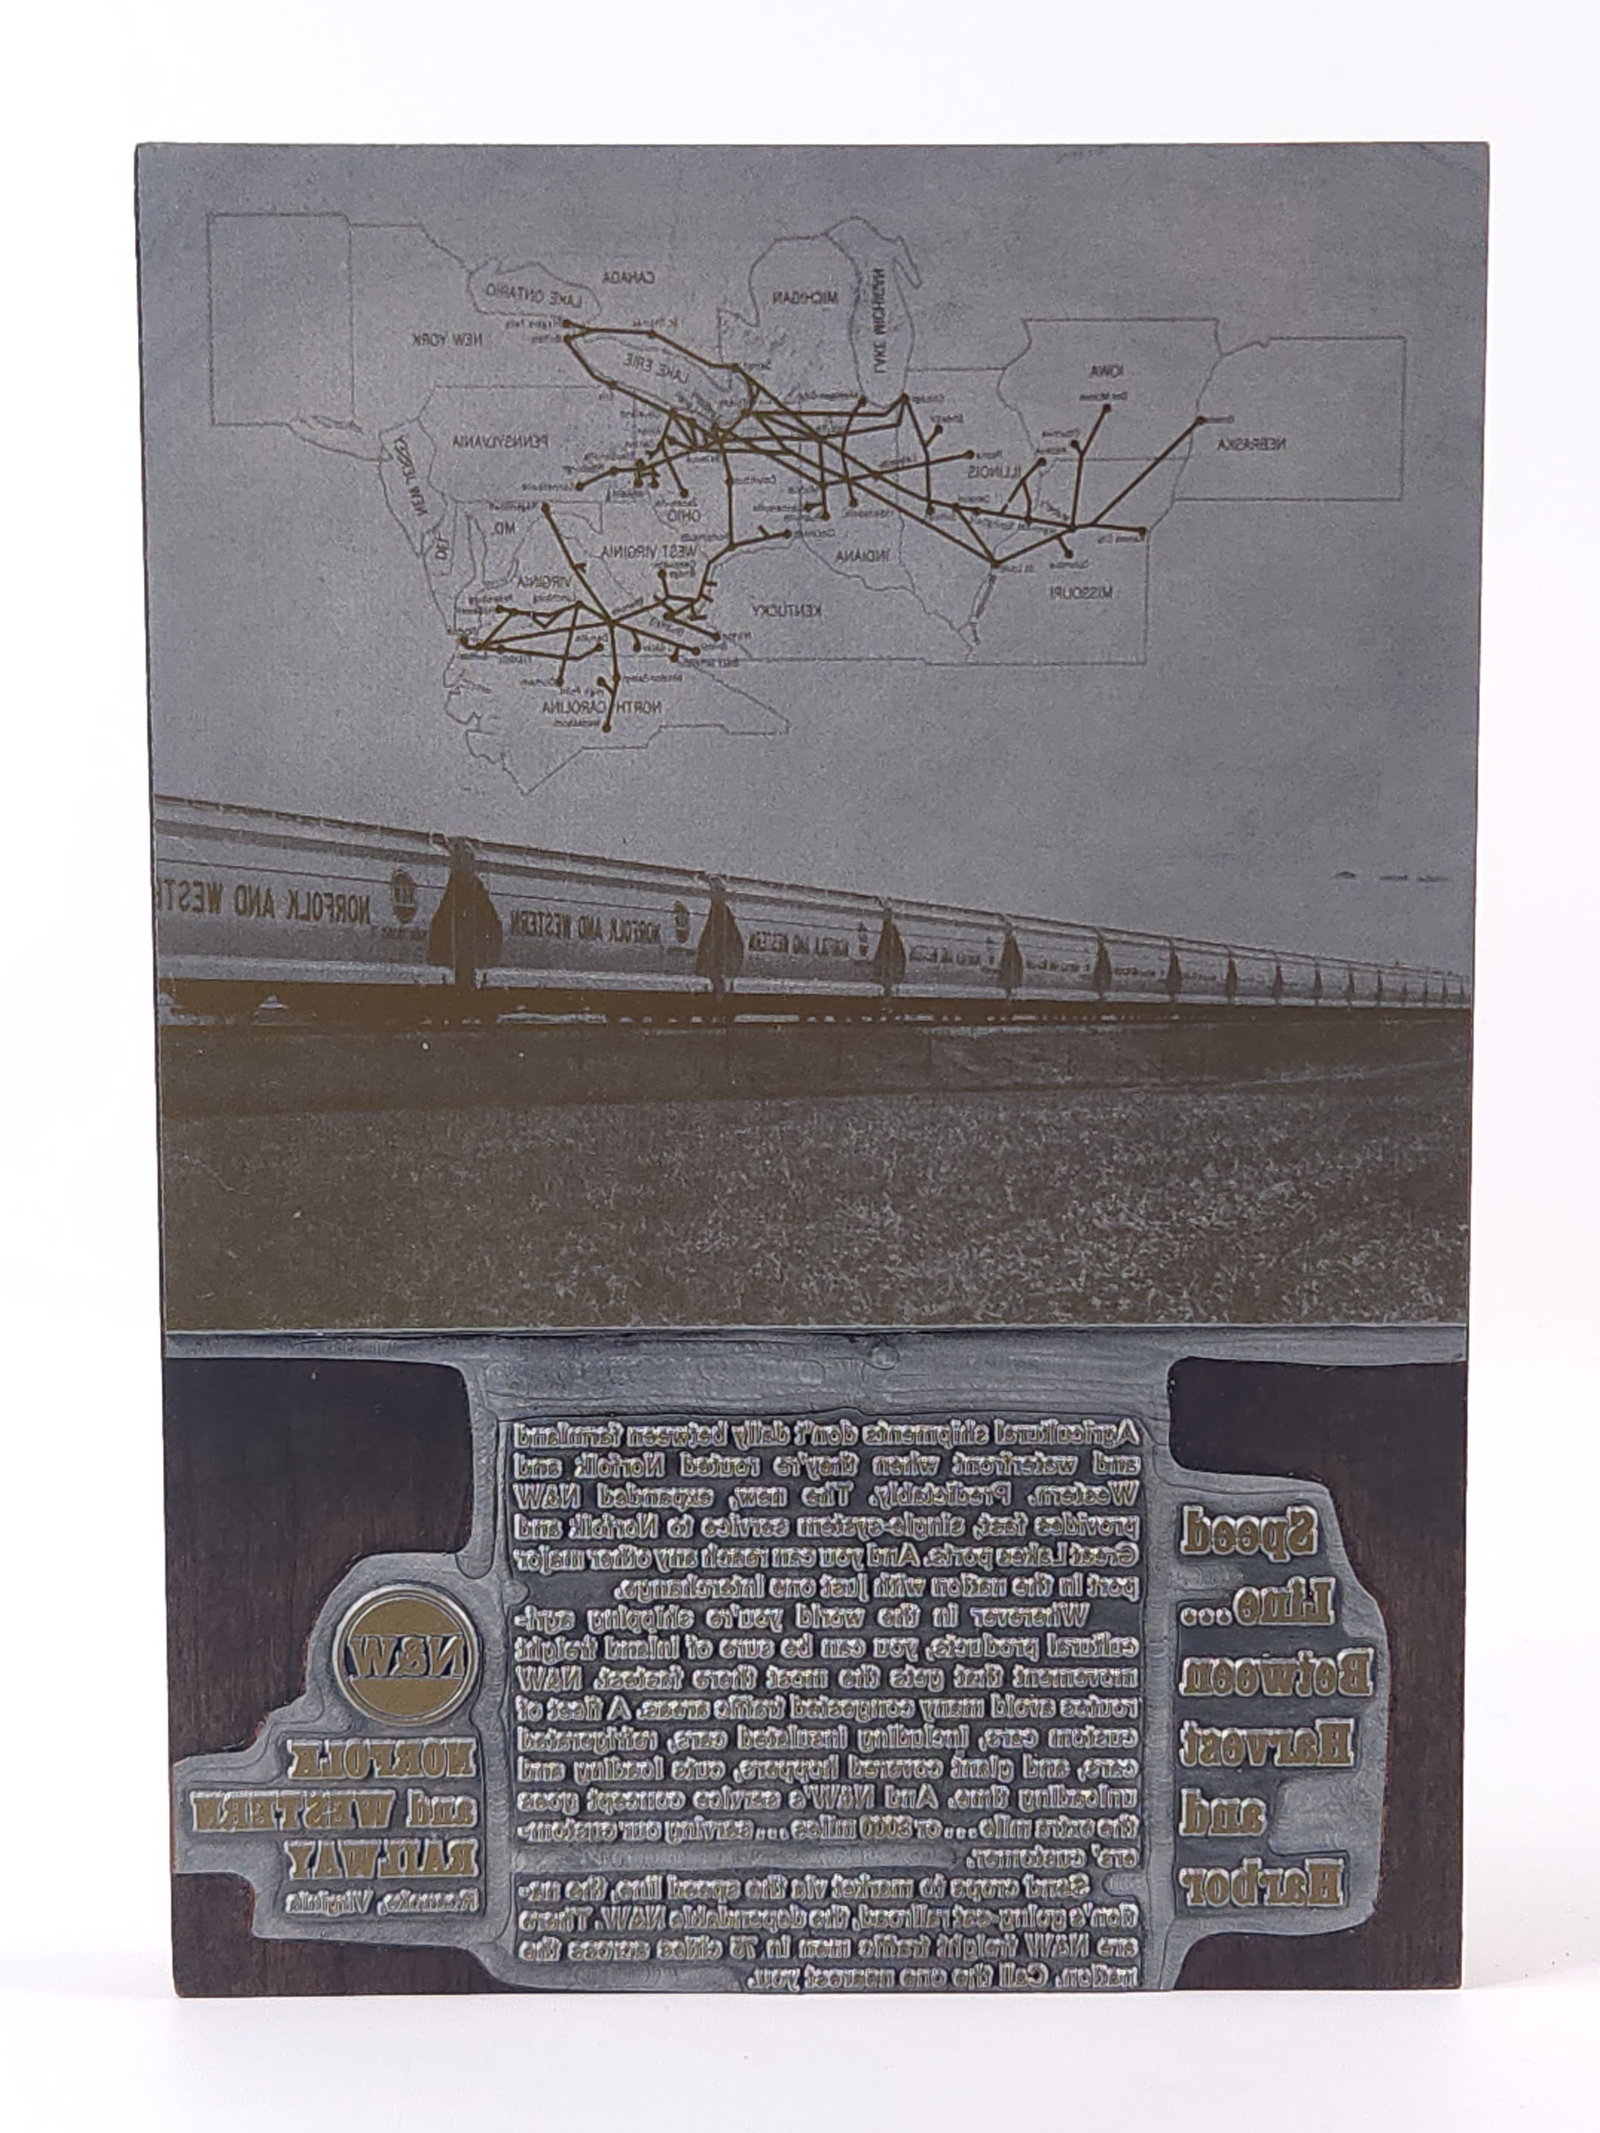 CANADA
LAKE ONTARIO
MICHIGAN
LAKE MICHIGAN
NEW YORK
LAKE ERIE
IOWA
Des Moines
NEBRASKA
PENNSYLVANIA
NEW JERSEY
ILLINOIS
OHIO
MD.
DEL
WEST VIRGINIA
INDIANA
VIRGINIA
MISSOURI
KENTUCKY
NORTH CAROLINA
Chicago
Peoria
Decatur
St. Louis
Kansas City
Columbia
Cincinnati
Portsmouth
Lynchburg
Durham
Winston-Salem
NORFOLK AND WESTE
NORFOLK AND WESTERN
NORFOLK AND WESTERN
Speed
Line...
Between
Harvest
and
Harbor
Agricultural shipments don't dally between farmland
and waterfront when they're routed Norfolk and
Western. Predictably. The new, expanded N&W
provides fast, single-system service to Norfolk and
Great Lakes ports. And you can reach any other major
port in the nation with just one interchange.
Wherever in the world you're shipping agri-
cultural products, you can be sure of inland freight
movement that gets the most there fastest. N&W
routes avoid many congested traffic areas. A fleet of
custom cars, including insulated cars, refrigerated
cars, and giant covered hoppers, cuts loading and
unloading time. And N&W's service concept goes
the extra mile...or 8000 miles...serving our custom-
ers' customer.
Send crops to market via the speed line, the na-
tion's going-est railroad, the dependable N&W. There
are N&W freight traffic men in 75 cities across the
nation. Call the one nearest you.
N&W
NORFOLK
and WESTERN
RAILWAY
Roanoke, Virginia